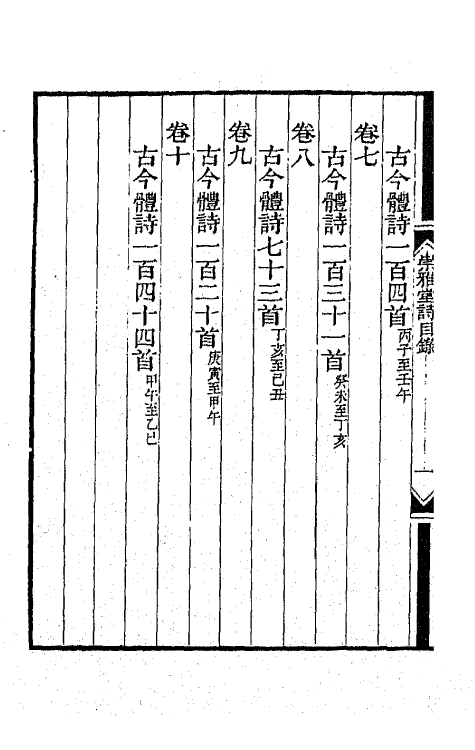 崇雅堂詩目錄
一
古今體詩一百四首丙子至壬午
卷七
古今體詩一百三十一首癸未至丁亥
卷八
古今體詩七十三首丁亥至己丑
卷九
古今體詩一百二十首庚寅至甲午
卷十
古今體詩一百四十四首甲午至乙巳